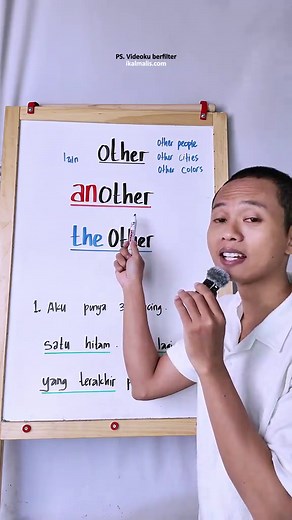 PS. Videoku berfilter
ikalmalis.com
lain other
other people
other cities
other colors
another
the other
1. Aku punya 3
satu hitam.
yang terakhir